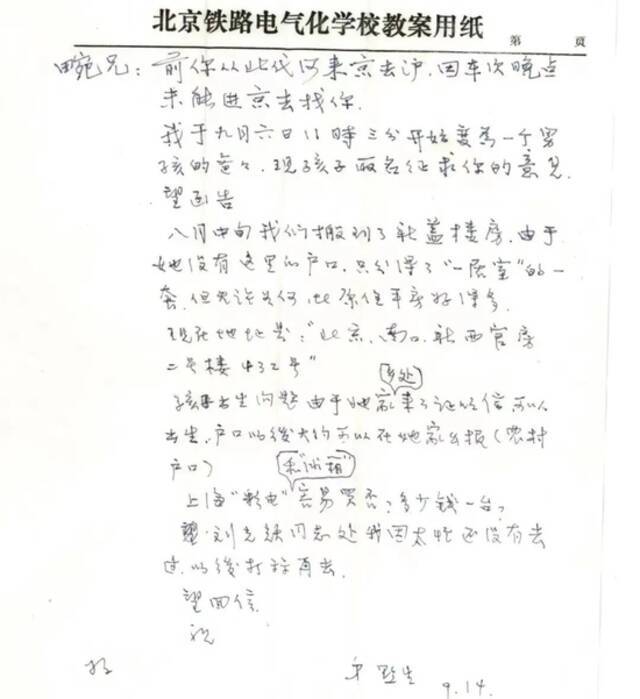 北京铁路电气化学校教案用纸
第 页
宛兄：前你从此代河来京去沪，因车次晚点
未能进京去找你。
我于九月六日11時三分开始变为一个男
孩的爸々，现孩子取名征求你的意见，
望函告
八月中旬我们搬到了新盖楼房，由于
她没有这里的户口，只分得了“一居室”的一
套，但无论如何比原住平房好得多，
现在地址是：“北京，南口，新西官房
二号楼432号”
乡处
孩子出生问题由于她家来了证的信可以
出生，户口以後大约可以在她家乡报（农村
户口）
和“冰箱”
上海“彩电”容易買否？多少钱一台？
刘先 同志处我因太忙还没有去
过，以後打算再去。
望回信。
祝
好
生 9.14.